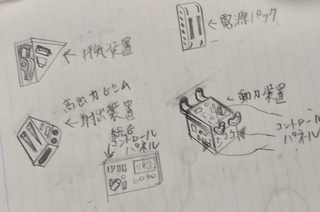 ←排気装置
←電源パック
高出力ビーム
←射出装置
統合
コントロール
パネル
←動力装置
コントロール
パネル